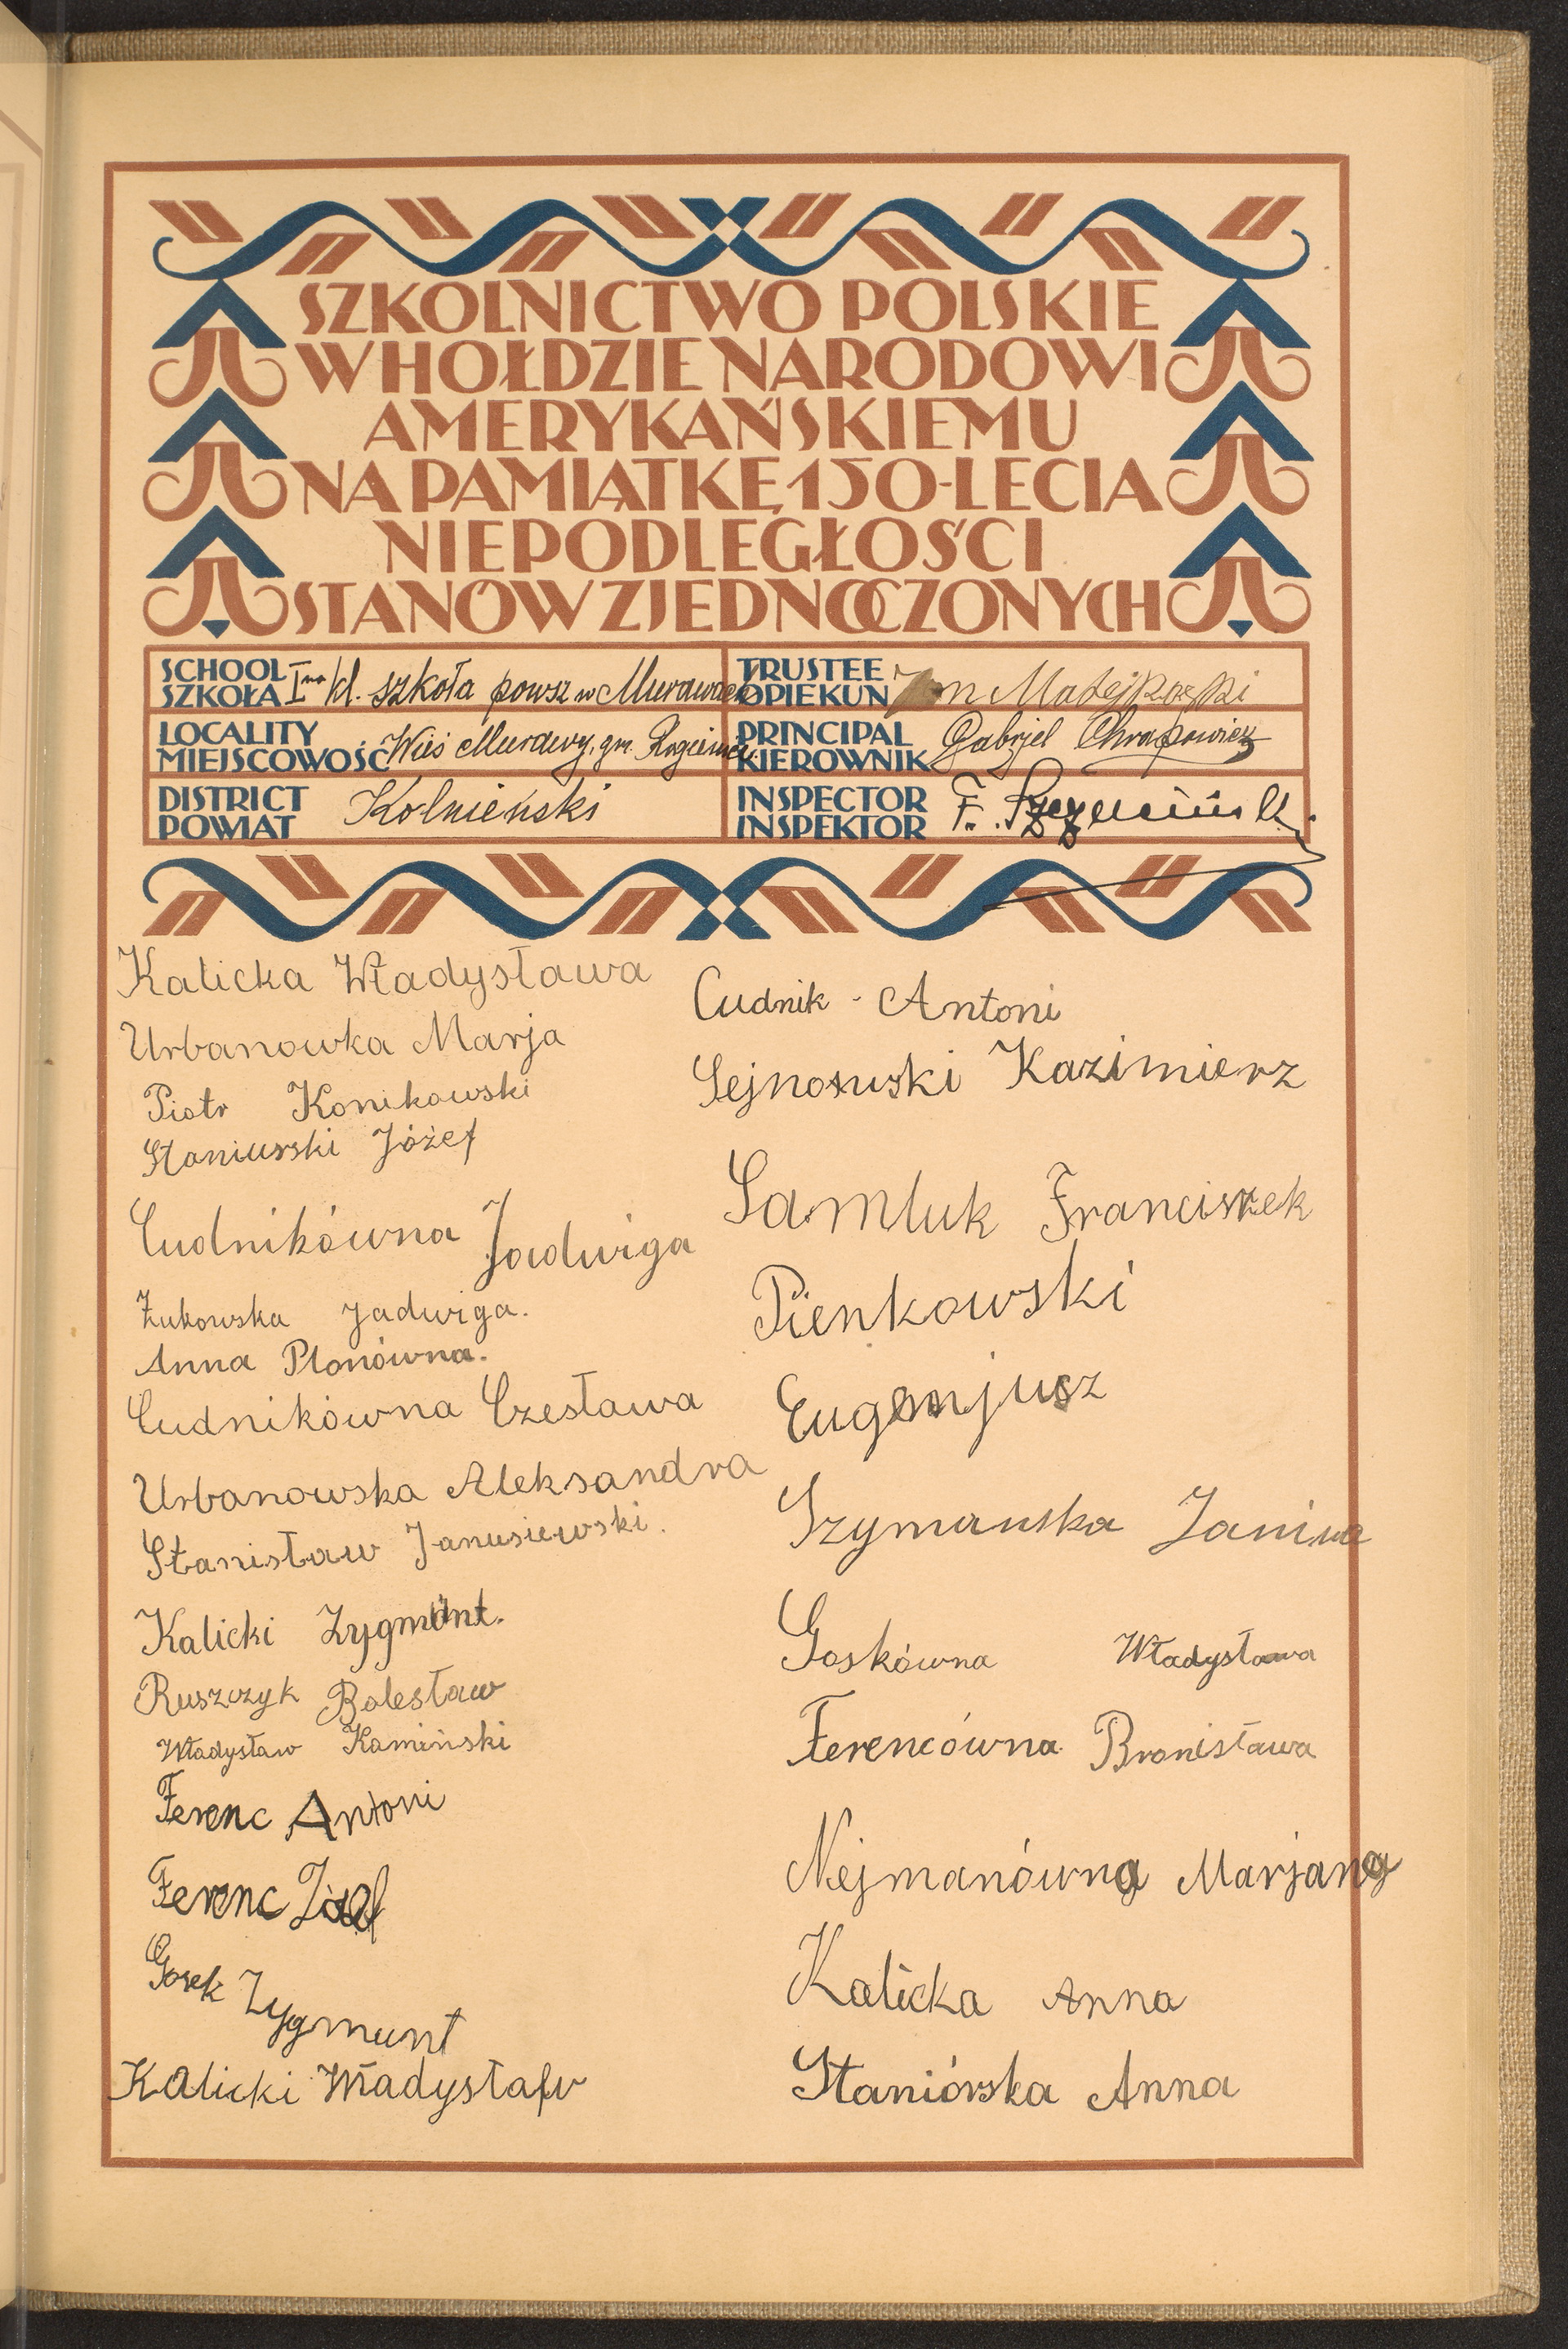 SZKOLNICTWO POLSKIE
W HOŁDZIE NARODOWI
AMERYKAŃSKIEMU
NA PAMIĄTKĘ 150-LECIA
NIEPODLEGŁOŚCI
STANÓW ZJEDNOCZONYCH
SCHOOL
SZKOŁA I kl. szkoła powsz w Murawach
TRUSTEE
OPIEKUN Jan
LOCALITY
MIEJSCOWOŚĆ Wieś Murawy, gm.
PRINCIPAL
KIEROWNIK Gabrjel Chrapowicz
DISTRICT
POWIAT Kolnieński
INSPECTOR
INSPEKTOR F.
Kalicka Władysława
Urbanowka Marja
Piotr Konikowski
Staniurski Józef
Cudnikówna Jadwiga
Żukowska Jadwiga.
Anna Plonówna.
Cudnikówna Czesława
Urbanowska Aleksandra
Stanisław Janusiewski.
Kalicki Zygmunt.
Ruszczyk Bolesław
Władysław Kamiński
Ferenc Antoni
Ferenc Józef
Gosek Zygmunt
Kalicki Władysław
Cudnik - Antoni
Sejnowski Kazimierz
Samluk Franciszek
Pienkowski
Eugenjusz
Szymanska Janina
Goskówna Władysława
Ferencówna Bronisława
Nejmanówna Marjana
Kalicka Anna
Staniórska Anna